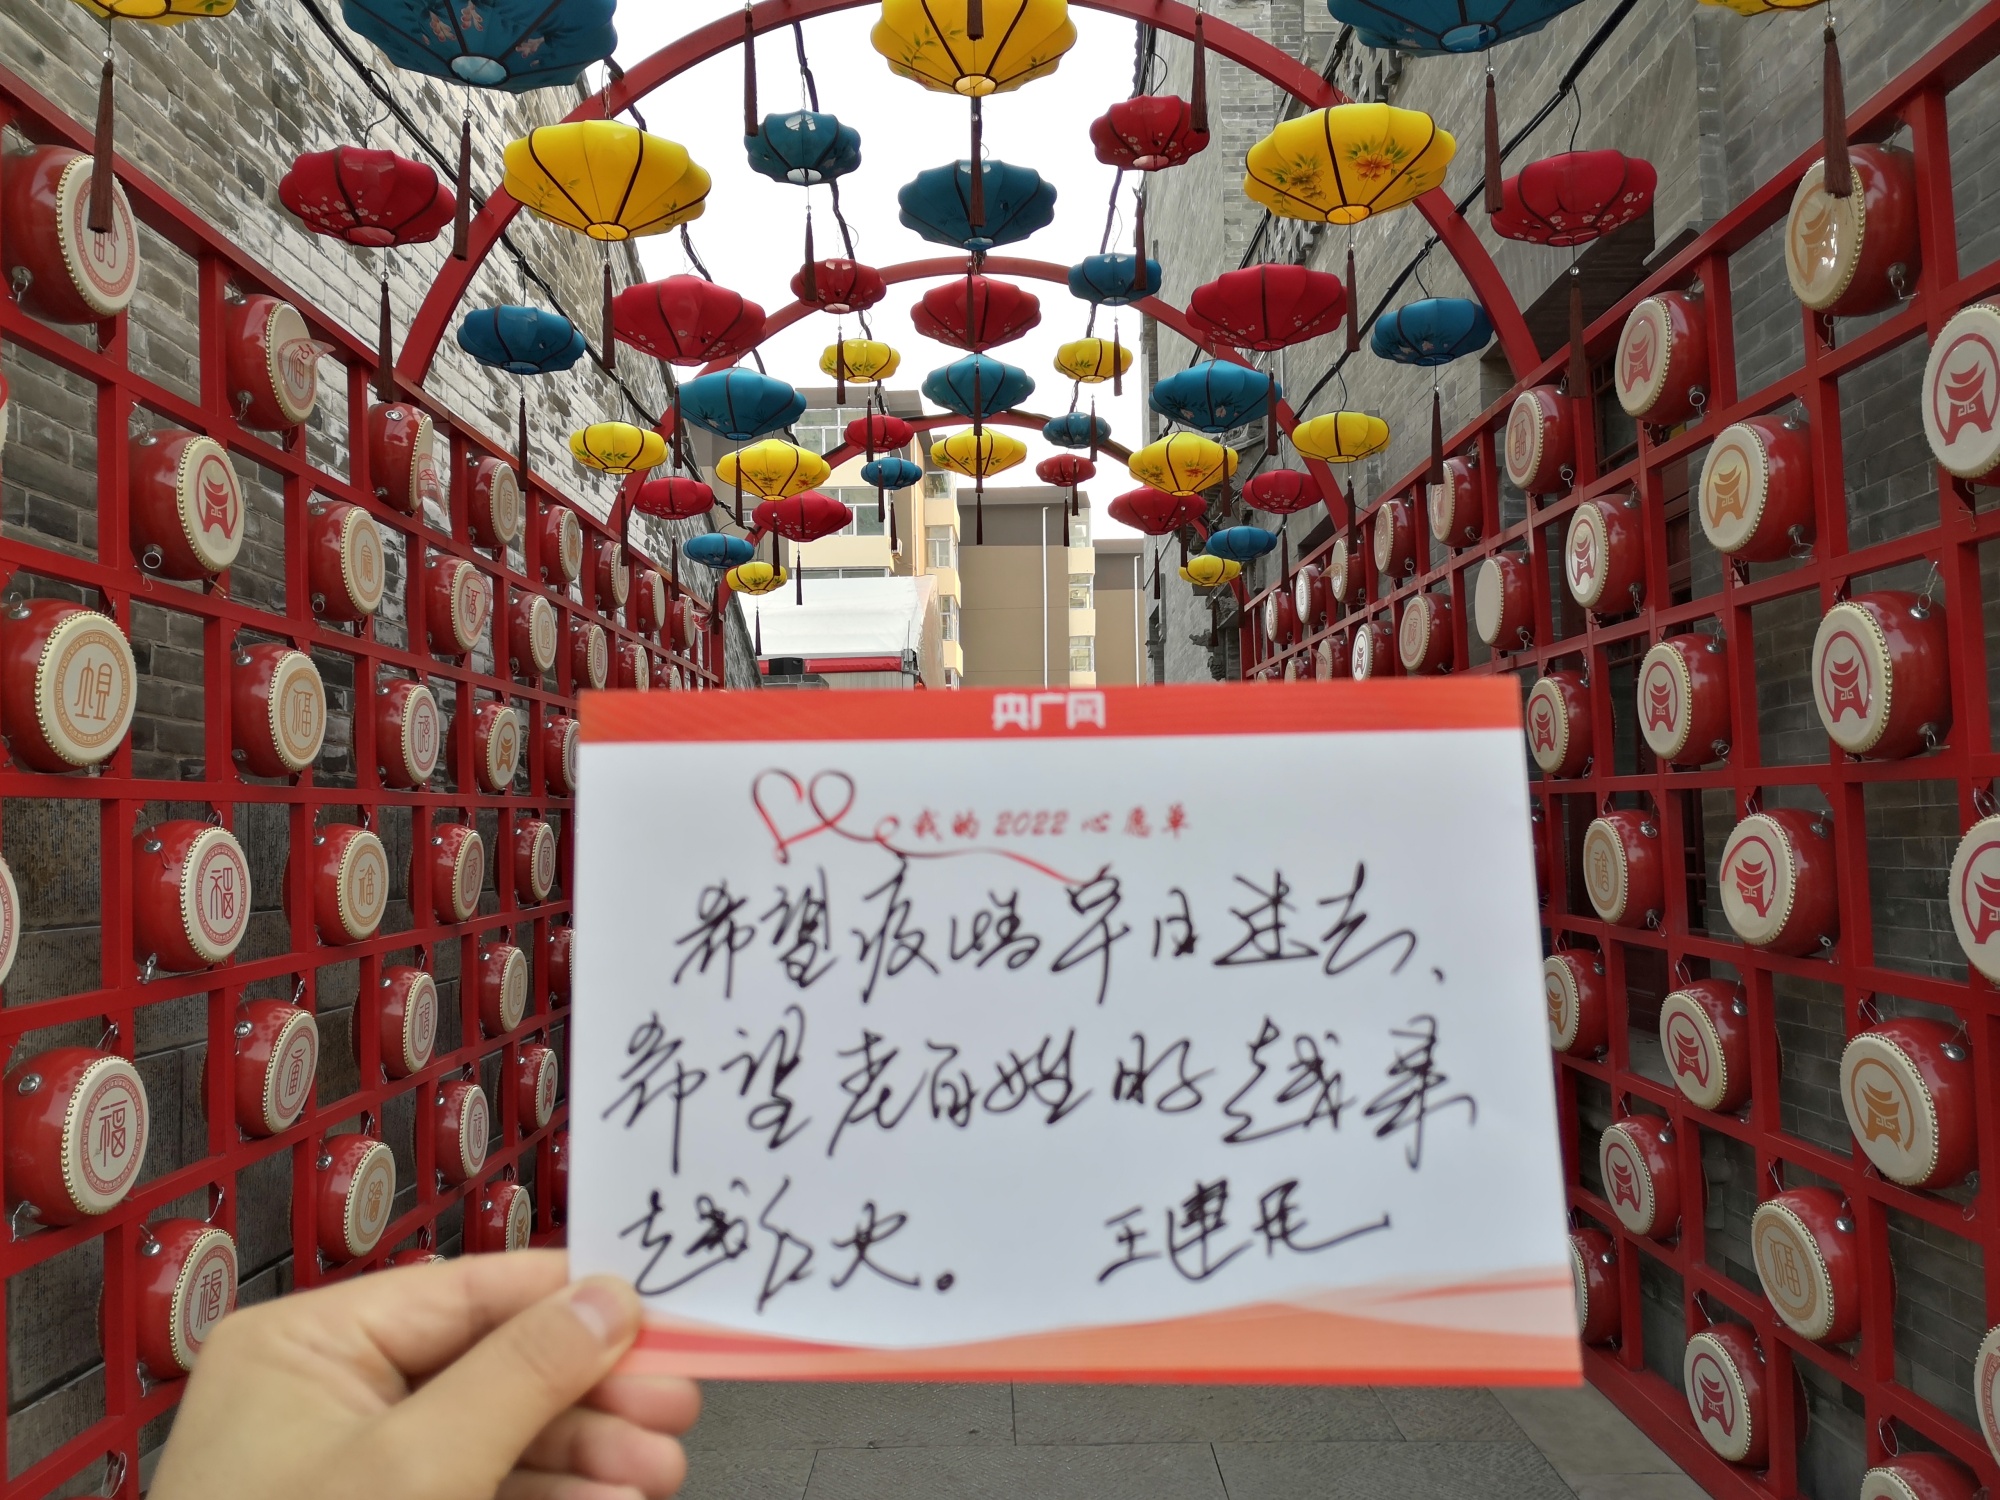 央广网
我的 2022 心愿单
希望疫情早日去、
希望老百姓日子越来
越红火。 王建
福
福
福
福